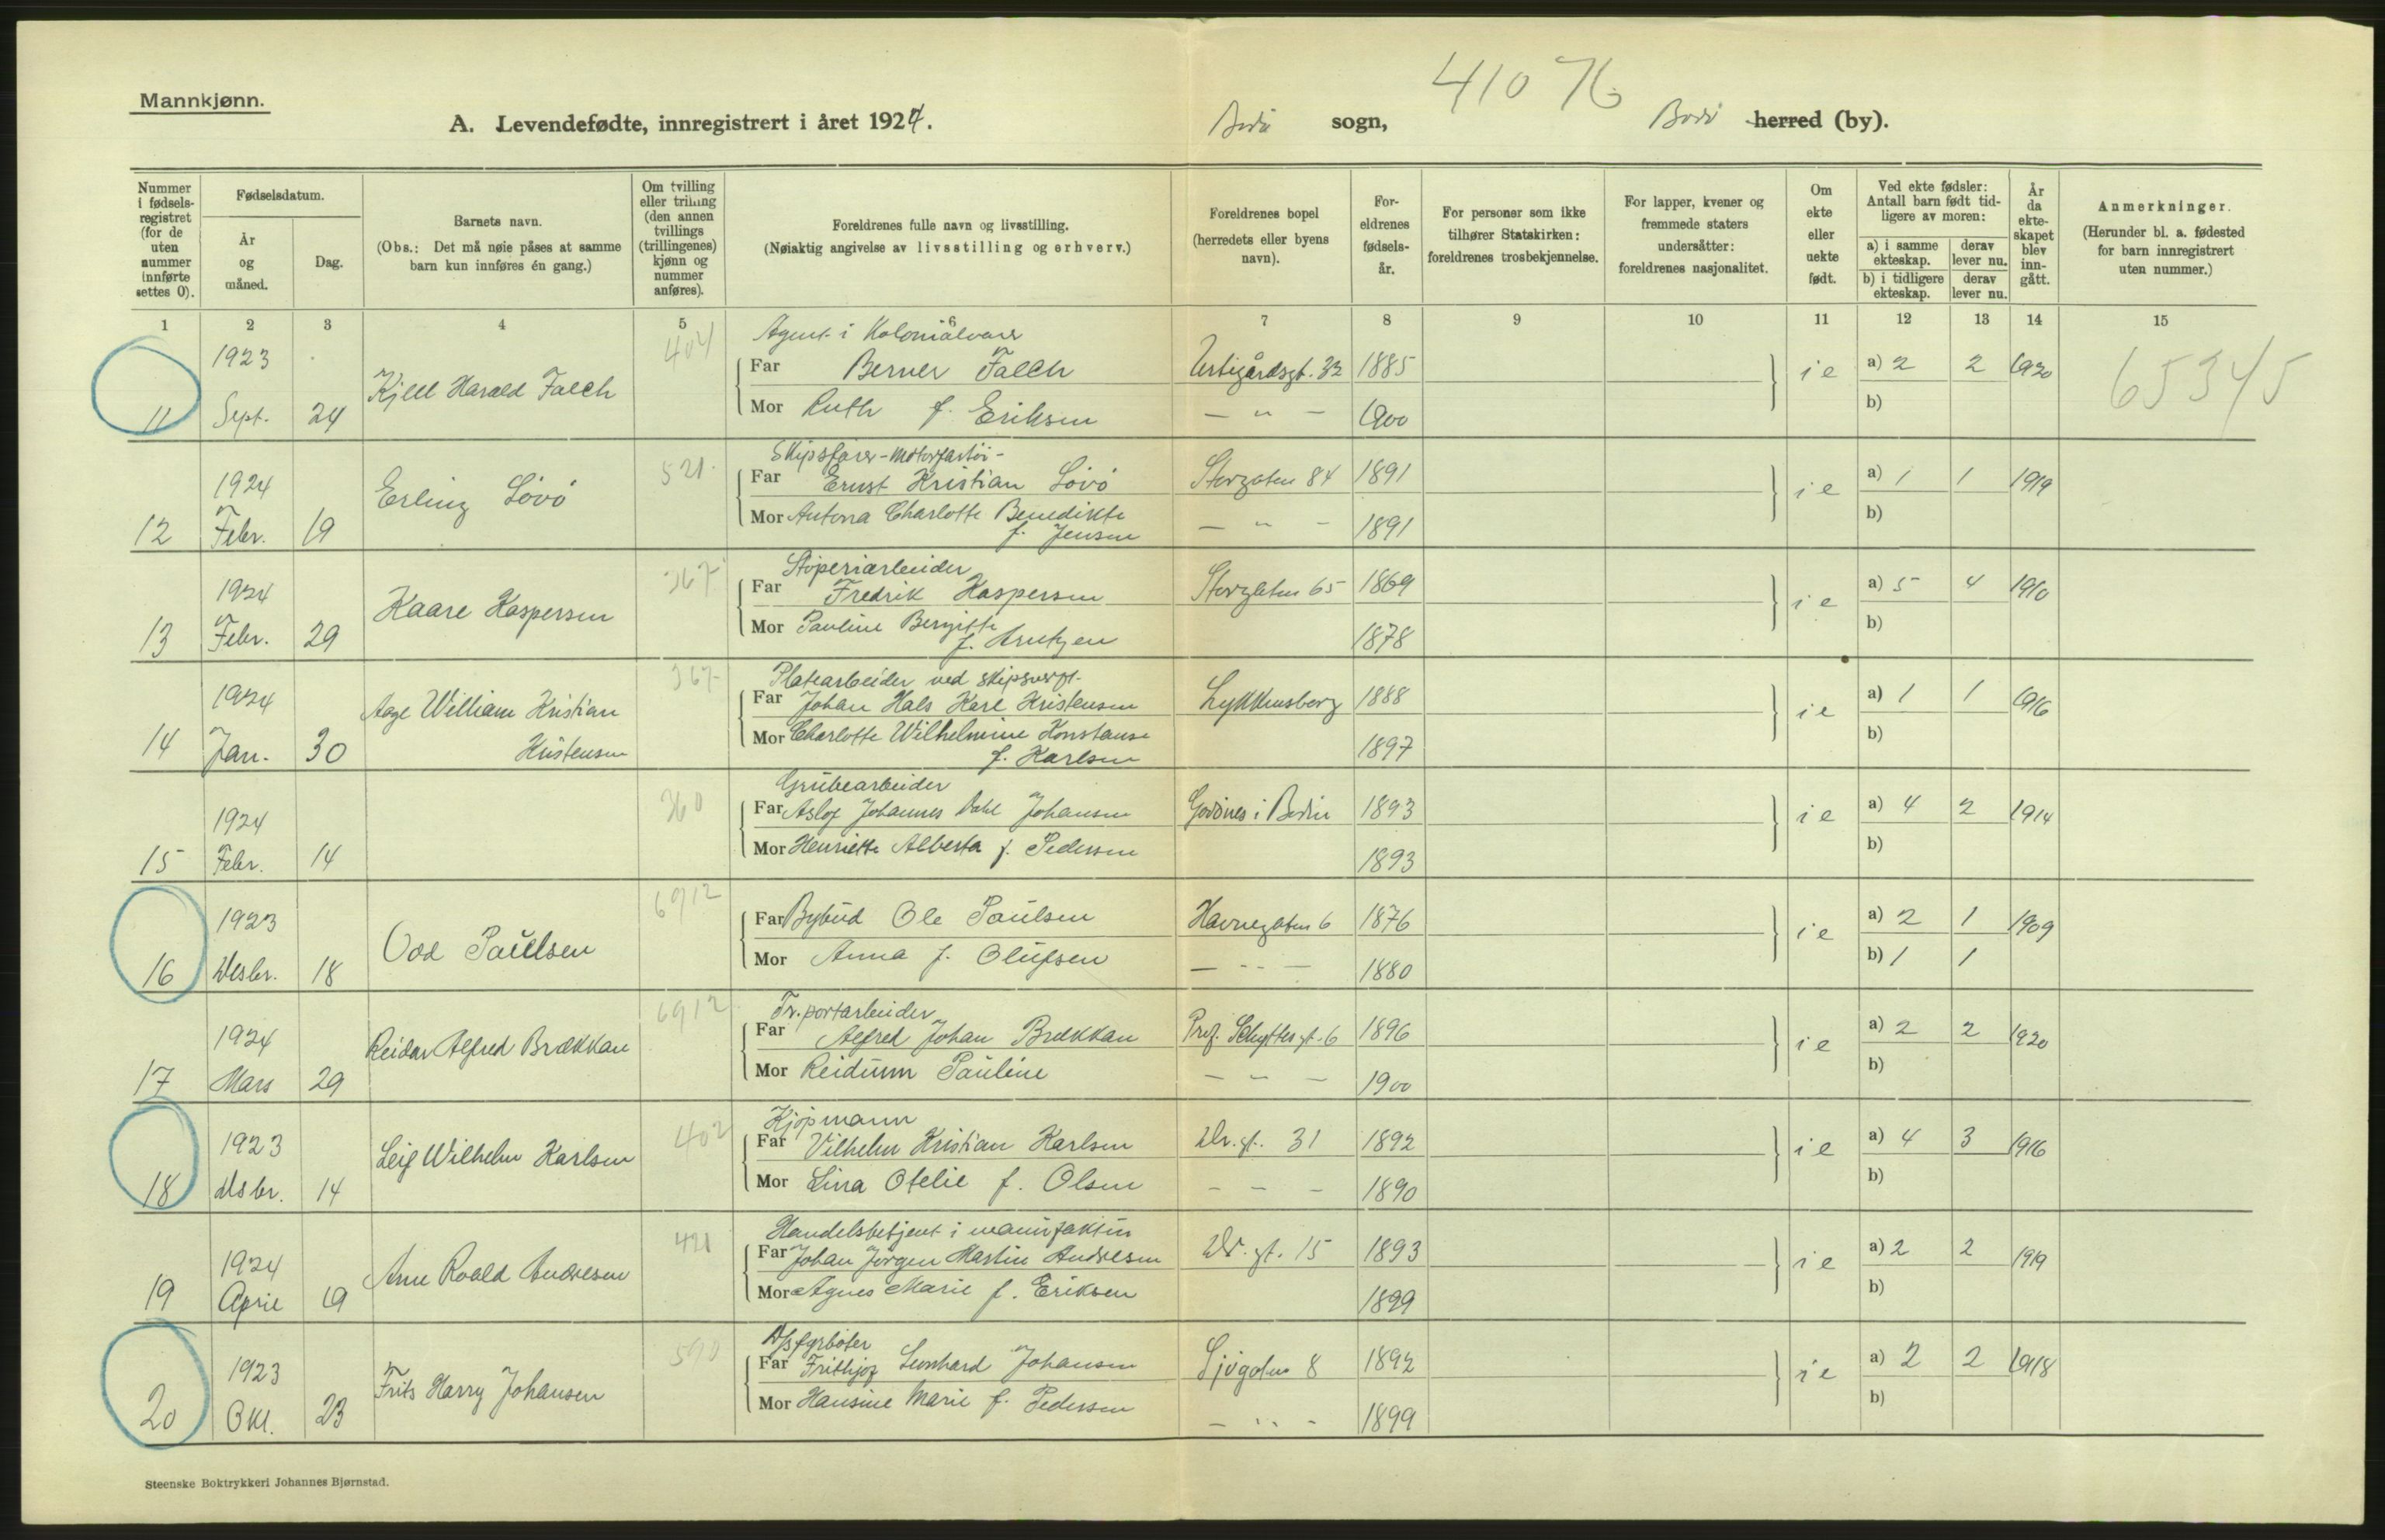 Mannkjønn.
A. Levendefødte, innregistrert i året 1924.
Bodø sogn,
410 76
Bodø herred (by).
Nummer i fødselsregistret (for de uten nummer innførte settes 0).
Fødselsdatum.
År og måned.
Dag.
Barnets navn.
(Obs.: Det må nøie påses at samme barn kun innføres én gang.)
Om tvilling eller trilling (den annen tvillings (trillingenes) kjønn og nummer anføres).
Foreldrenes fulle navn og livsstilling.
(Nøiaktig angivelse av livsstilling og erhverv.)
Foreldrenes bopel (herredets eller byens navn).
Foreldrenes fødselsår.
For personer som ikke tilhører Statskirken: foreldrenes trosbekjennelse.
For lapper, kvener og fremmede staters undersåtter: foreldrenes nasjonalitet.
Om ekte eller uekte født.
Ved ekte fødsler: Antall barn født tidligere av moren:
a) i samme ekteskap.
derav lever nu.
b) i tidligere ekteskap.
derav lever nu.
År da ekteskapet blev inngått.
Anmerkninger.
(Herunder bl. a. fødested for barn innregistrert uten nummer.)
1 2 3 4 5 6 7 8 9 10 11 12 13 14 15
404 Agent i Kolonialvarer
1923 Far Berner Falch 1885 i e a) 2 2 1920 65345
11 Sept. 24 Kjell Harald Falch Mor Ruth f. Eriksen — " — 1900 b)
521 Skipsfører - motorfartøi -
1924 Erling Lövö Far Ernst Kristian Lövö Storgaten 84 1891 i e a) 1 1 1919
12 Febr. 19 Mor Antona Charlotte Benedikte f. Jensen — " — 1891 b)
367 Støperiarbeider
1924 Kaare Kaspersen Far Fredrik Kaspersen Storgaten 65 1869 i e a) 5 4 1910
13 Febr. 29 Mor Pauline Bergitte f. Arntzen 1878 b)
367 Platearbeider ved skipsverft.
1924 Aage William Kristian Kristensen Far Johan Hals Karl Kristensen Lykkensborg 1888 i e a) 1 1 1916
14 Jan. 30 Mor Charlotte Wilhelmine Konstanse f. Karlsen 1897 b)
360 Grubearbeider
1924 Far Aslof Johannes Dahl Johansen i Bodin 1893 i e a) 4 2 1914
15 Febr. 14 Mor Henriette Alberta f. Pedersen 1893 b)
6912
1923 Odd Paulsen Far Bybud Ole Paulsen Havnegaten 6 1876 i e a) 2 1 1909
16 Desbr. 18 Mor Anna f. Olufsen — " — 1880 b) 1 1
6912 Tr.portarbeider
1924 Reidar Alfred Brækkan Far Alfred Johan Brækkan Prof. Schyttes gt. 6 1896 i e a) 2 2 1920
17 Mars 29 Mor Reidunn Pauline — — — 1900 b)
402 Kjøpmann
1923 Leif Wilhelm Karlsen Far Vilhelm Kristian Karlsen Dr. gt. 31 1892 i e a) 4 3 1916
18 Desbr. 14 Mor Lina Otelie f. Olsen — — — 1890 b)
421 Handelsbetjent i manufaktur
1924 Arne Roald Andresen Far Johan Jørgen Martin Andresen Dr. gt. 15 1893 i e a) 2 2 1919
19 April 19 Mor Agnes Marie f. Eriksen 1899 b)
590 Dpsfyrbøter
1923 Frits Harry Johansen Far Frithjof Leonhard Johansen Sjøgaten 8 1892 i e a) 2 2 1918
20 Okt. 23 Mor Hansine Marie f. Pedersen — " — 1899 b)
Steenske Boktrykkeri Johannes Bjørnstad.